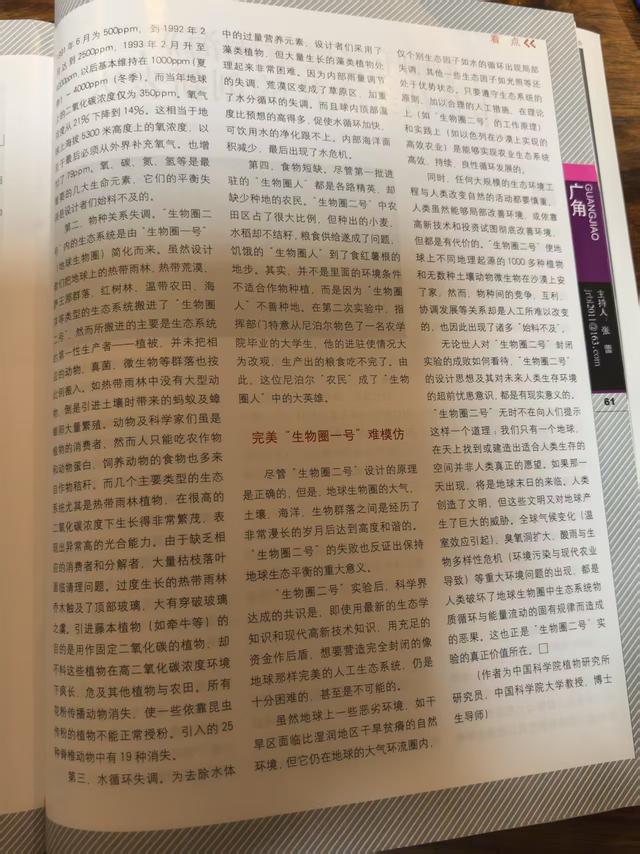 看 点
91年6月为500ppm，到1992年2
达到2500ppm，1993年2月升至
ppm,以后基本维持在1000ppm(夏
～4000ppm（冬季）。而当年地球
的二氧化碳浓度仅为350ppm。氧气
度从21%下降到14%。这相当于地
海拔5300米高度上的氧浓度，以
于最后必须从外界补充氧气。也增
了79ppm。氧、碳、氮、氢等是最
要的几大生命元素，它们的平衡失
是设计者们始料不及的。
第二，物种关系失调。“生物圈二
”内的生态系统是由“生物圈一号”
（地球生物圈）简化而来。虽然设计
们把地球上的热带雨林、热带荒漠、
带王那群落、红树林、温带农田、海
等类型的生态系统搬进了“生物圈
二号”，然而所搬进的主要是生态系统
的第一性生产者——植被，并未把相
应的动物、真菌、微生物等群落也按
比例搬入。如热带雨林中没有大型动
物，倒是引进土壤时带来的蚂蚁及蟑
螂大量繁殖。动物及科学家们虽是
植物的消费者，然而人只能吃农作物
和动物蛋白，饲养动物的食物也多来
自作物秸秆。而几个主要类型的生态
系统尤其是热带雨林植物，在很高的
二氧化碳浓度下生长得非常繁茂，表
现出异常高的光合能力。由于缺乏相
应的消费者和分解者，大量枯枝落叶
面临清理问题。过度生长的热带雨林
乔木触及了顶部玻璃，大有穿破玻璃
之虞。引进藤本植物（如牵牛等）的
目的是用作固定二氧化碳的植物，却
不料这些植物在高二氧化碳浓度环境
下疯长，危及其他植物与农田。所有
花粉传播动物消失，使一些依靠昆虫
传粉的植物不能正常授粉。引入的25
种脊椎动物中有19种消失。
第三，水循环失调。为去除水体
中的过量营养元素，设计者们采用了
藻类植物，但大量长的藻类植物处
理起来非常困难。因为内部雨量调节
的失调，荒漠区变成了草原区，加重
了水分循环的失调。而且球内顶部温
度比预想的高得多，促使水循环加快，
可饮用水的净化跟不上。内部海洋面
积减少，最后出现了水危机。
第四，食物短缺。尽管第一批进
驻的“生物圈人”都是各路精英，却
缺少种地的农民。“生物圈二号”中农
田区占了很大比例，但种出的小麦、
水稻却不结籽，粮食供给遂成了问题，
饥饿的“生物圈人”到了食红薯根的
地步。其实，并不是里面的环境条件
不适合作物种植，而是因为“生物圈
人”不善种地。在第二次实验中，指
挥部门特意从尼泊尔物色了一名农学
院毕业的大学生，他的进驻使情况大
为改观，生产出的粮食吃不完了。由
此，这位尼泊尔“农民”成了“生物
圈人”中的大英雄。
完美“生物圈一号”难模仿
尽管“生物圈二号”设计的原理
是正确的，但是，地球生物圈的大气，
土壤，海洋，生物群落之间是经历了
非常漫长的岁月后达到高度和谐的。
“生物圈二号”的失败也反证出保持
地球生态平衡的重大意义。
“生物圈二号”实验后，科学界
达成的共识是，即使用最新的生态学
知识和现代高新技术知识，用充足的
资金作后盾，想要营造完全封闭的像
地球那样完美的人工生态系统，仍是
十分困难的，甚至是不可能的。
虽然地球上一些恶劣环境，如干
旱区面临比湿润地区干旱贫瘠的自然
环境，但它仍在地球的大气环流圈内，
仅个别生态因子如水的循环出现局部
失调，其他一些生态因子如光照等还
处于优势状态。只要遵守生态系统的
原则，加以合理的人工措施，在理论
上（如“生物圈二号”的工作原理）
和实践上（如以色列在沙漠上实现的
高效农业）是能够实现农业生态系统
高效、持续、良性循环发展的。
同时，任何大规模的生态环境工
程与人类改变自然的活动都要慎重，
人类虽然能够局部改善环境，或依靠
高新技术和投资试图彻底改善环境，
但都是有代价的。“生物圈二号”使地
球上不同地理起源的1000多种植物
和无数种土壤动物微生物在沙漠上安
了家，然而，物种间的竞争、互利、
协调发展等关系却是人工所难以改变
的，也因此出现了诸多“始料不及”。
无论世人对“生物圈二号”封闭
实验的成败如何看待，“生物圈二号”
的设计思想及其对未来人类生存环境
的超前忧患意识，都是有现实意义的。
“生物圈二号”无时不在向人们提示
这样一个道理：我们只有一个地球，
在天上找到或建造出适合人类生存的
空间并非人类真正的愿望。如果那一
天出现，将是地球末日的来临。人类
创造了文明，但这些文明又对地球产
生了巨大的威胁。全球气候变化（温
室效应引起），臭氧洞扩大、酸雨与生
物多样性危机（环境污染与现代农业
导致）等重大环境问题的出现，都是
人类破坏了地球生物圈中生态系统物
质循环与能量流动的固有规律而造成
的恶果。这也正是“生物圈二号”实
验的真正价值所在。□
（作者为中国科学院植物研究所
研究员，中国科学院大学教授，博士
生导师）
广角
GUANGJIAO
主持人：张 蕾
jrnl2011@163.com
61